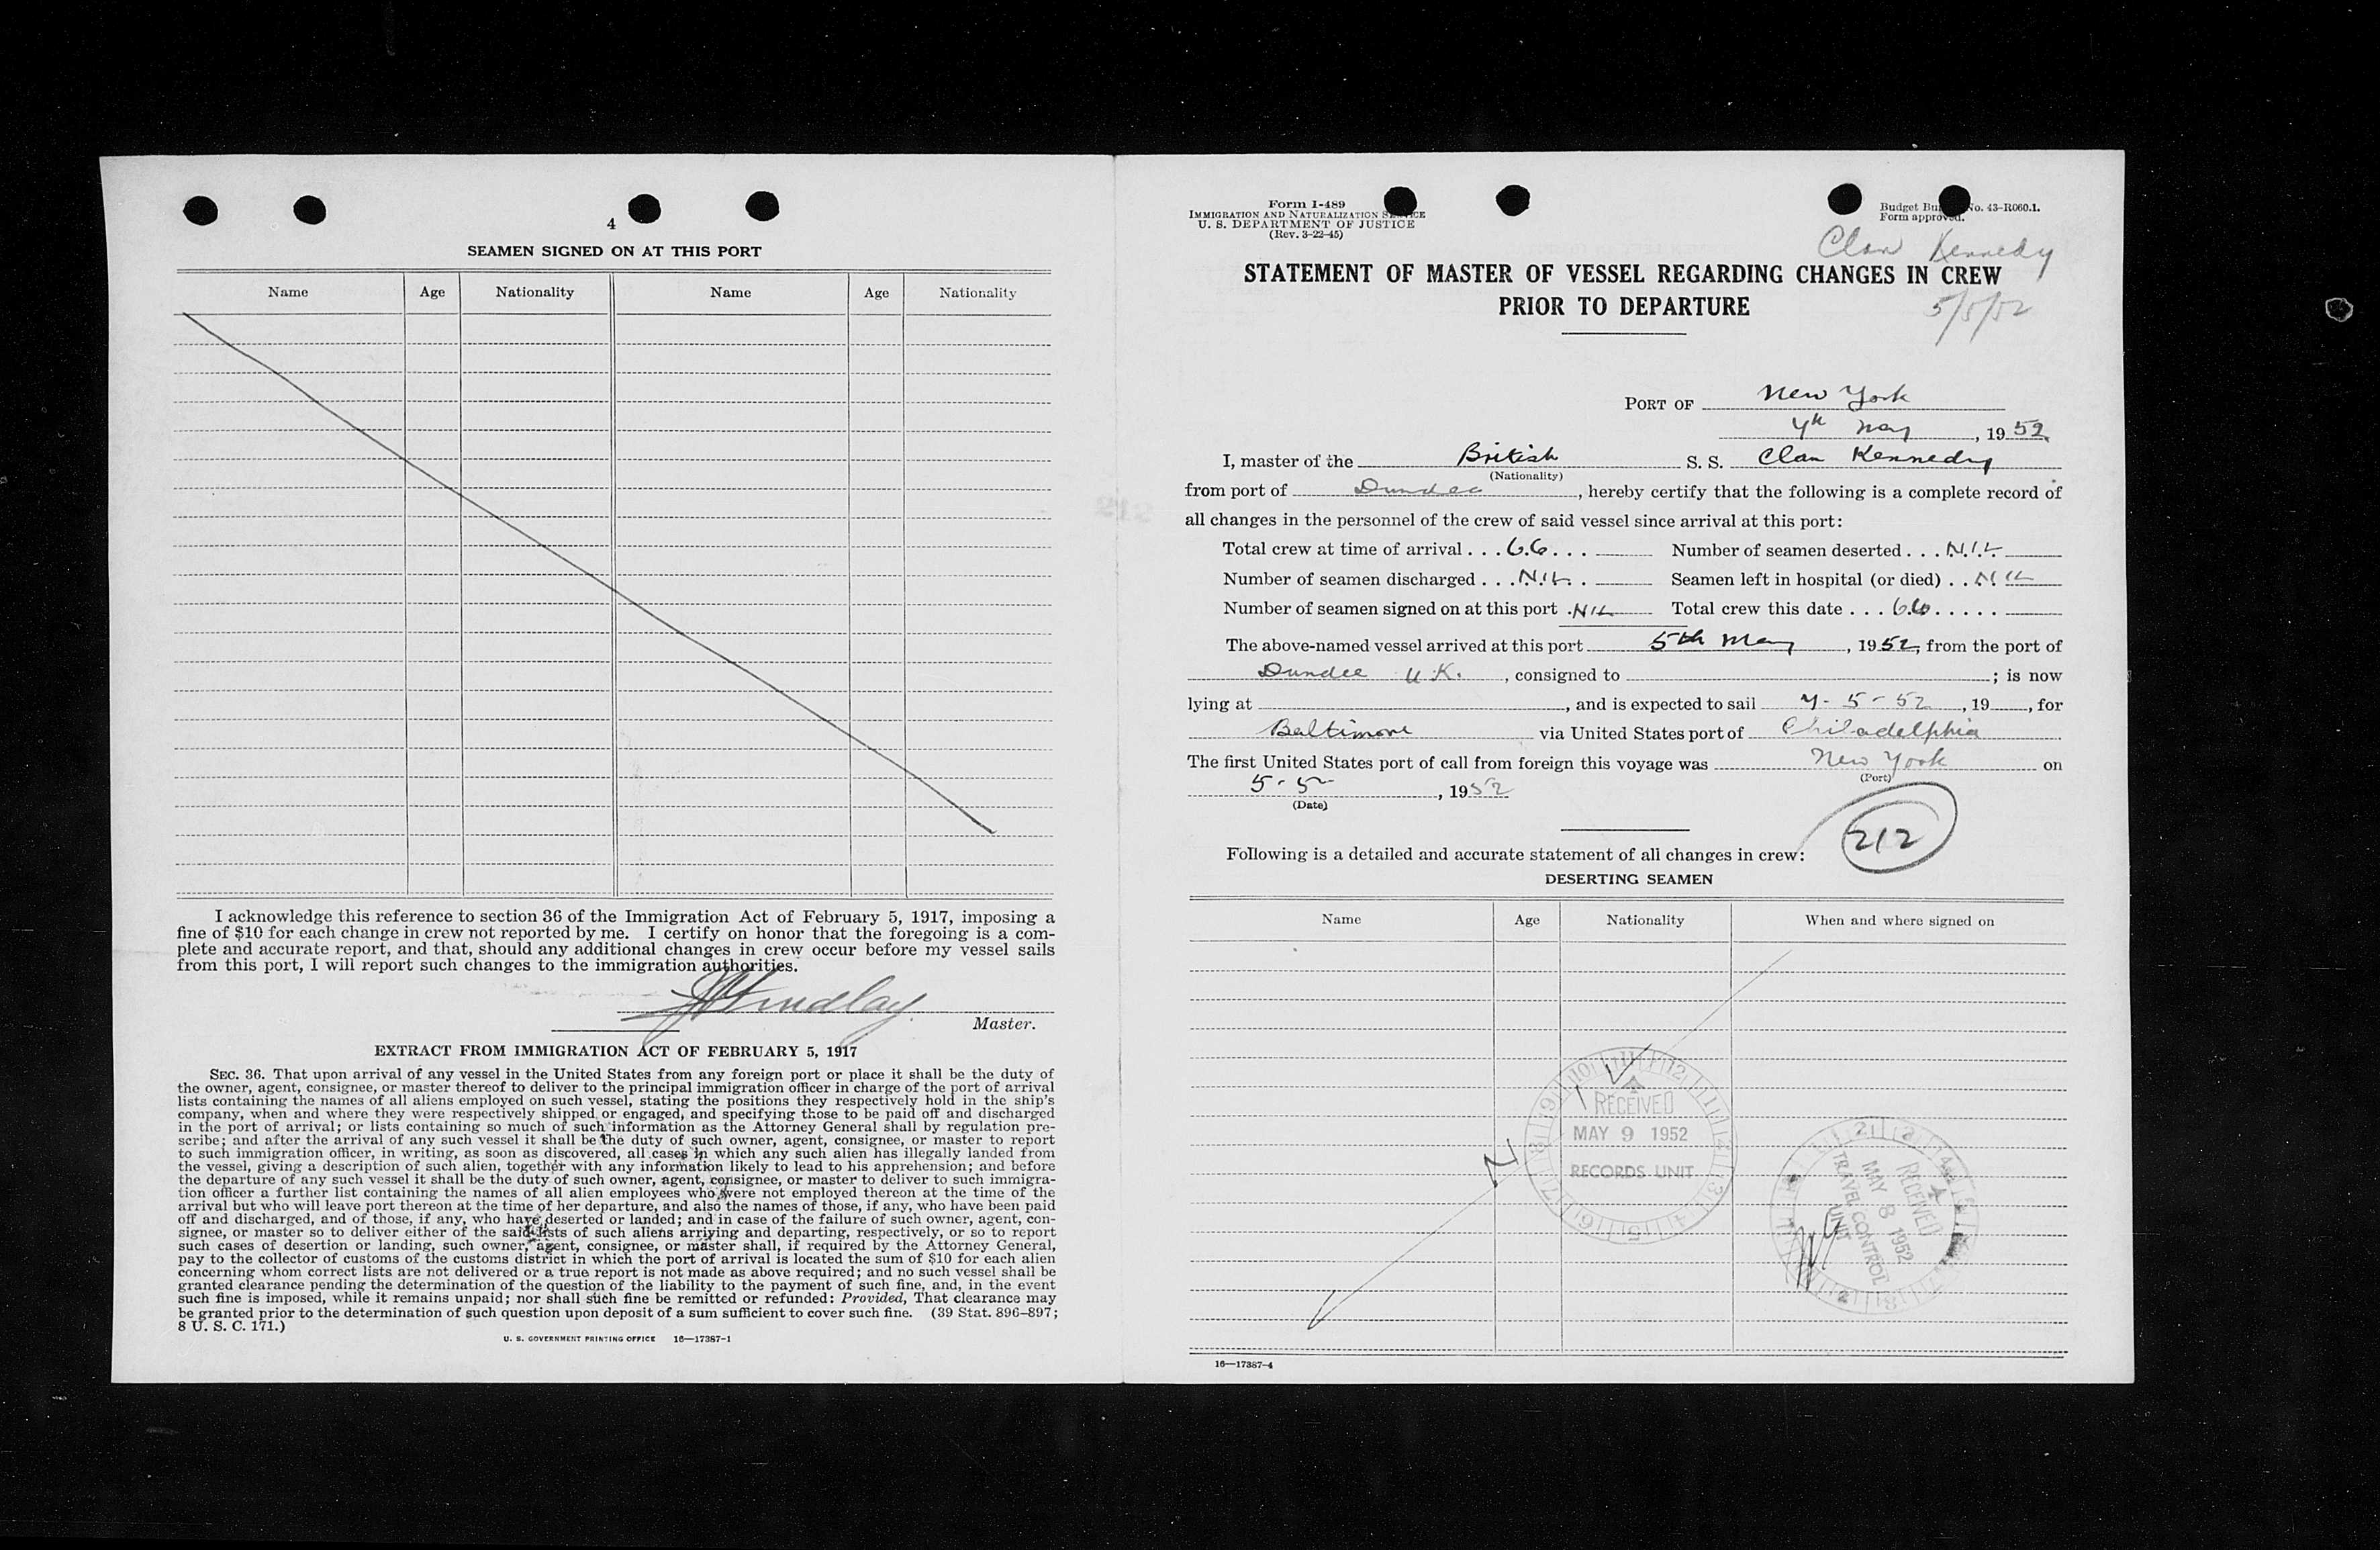 4
SEAMEN SIGNED ON AT THIS PORT
Name Age Nationality Name Age Nationality
I acknowledge this reference to section 36 of the Immigration Act of February 5, 1917, imposing a
fine of $10 for each change in crew not reported by me. I certify on honor that the foregoing is a com-
plete and accurate report, and that, should any additional changes in crew occur before my vessel sails
from this port, I will report such changes to the immigration authorities.
Findlay
Master.
EXTRACT FROM IMMIGRATION ACT OF FEBRUARY 5, 1917
SEC. 36. That upon arrival of any vessel in the United States from any foreign port or place it shall be the duty of
the owner, agent, consignee, or master thereof to deliver to the principal immigration officer in charge of the port of arrival
lists containing the names of all aliens employed on such vessel, stating the positions they respectively hold in the ship's
company, when and where they were respectively shipped or engaged, and specifying those to be paid off and discharged
in the port of arrival; or lists containing so much of such information as the Attorney General shall by regulation pre-
scribe; and after the arrival of any such vessel it shall be the duty of such owner, agent, consignee, or master to report
to such immigration officer, in writing, as soon as discovered, all cases in which any such alien has illegally landed from
the vessel, giving a description of such alien, together with any information likely to lead to his apprehension; and before
the departure of any such vessel it shall be the duty of such owner, agent, consignee, or master to deliver to such immigra-
tion officer a further list containing the names of all alien employees who were not employed thereon at the time of the
arrival but who will leave port thereon at the time of her departure, and also the names of those, if any, who have been paid
off and discharged, and of those, if any, who have deserted or landed; and in case of the failure of such owner, agent, con-
signee, or master so to deliver either of the said lists of such aliens arriving and departing, respectively, or so to report
such cases of desertion or landing, such owner, agent, consignee, or master shall, if required by the Attorney General,
pay to the collector of customs of the customs district in which the port of arrival is located the sum of $10 for each alien
concerning whom correct lists are not delivered or a true report is not made as above required; and no such vessel shall be
granted clearance pending the determination of the question of the liability to the payment of such fine, and, in the event
such fine is imposed, while it remains unpaid; nor shall such fine be remitted or refunded: Provided, That clearance may
be granted prior to the determination of such question upon deposit of a sum sufficient to cover such fine. (39 Stat. 896–897;
8 U. S. C. 171.)
U. S. GOVERNMENT PRINTING OFFICE 16—17387-1
Form I-489
IMMIGRATION AND NATURALIZATION SERVICE
U. S. DEPARTMENT OF JUSTICE
(Rev. 3-22-45)
Budget Bu No. 43-R060.1.
Form approved.
Clan Kennedy
STATEMENT OF MASTER OF VESSEL REGARDING CHANGES IN CREW
PRIOR TO DEPARTURE
5/5/52
PORT OF New York
7th May, 1952
I, master of the British S. S. Clan Kennedy
(Nationality)
from port of Dundee, hereby certify that the following is a complete record of
all changes in the personnel of the crew of said vessel since arrival at this port:
Total crew at time of arrival . . . 66 . . . Number of seamen deserted . . . NIL
Number of seamen discharged . . . NIL . Seamen left in hospital (or died) . . NIL
Number of seamen signed on at this port . NIL Total crew this date . . . 66 . . . . .
The above-named vessel arrived at this port 5th May, 1952, from the port of
Dundee U.K., consigned to ; is now
lying at , and is expected to sail 7-5-52, 19 , for
Baltimore via United States port of Philadelphia
The first United States port of call from foreign this voyage was New York on
(Port)
5-5-, 1952
(Date)
212
Following is a detailed and accurate statement of all changes in crew:
DESERTING SEAMEN
Name Age Nationality When and where signed on
NIL
RECEIVED
MAY 9 1952
RECORDS UNIT
RECEIVED
MAY 8 1952
TRAVEL CONTROL
UNIT
16—17387-4